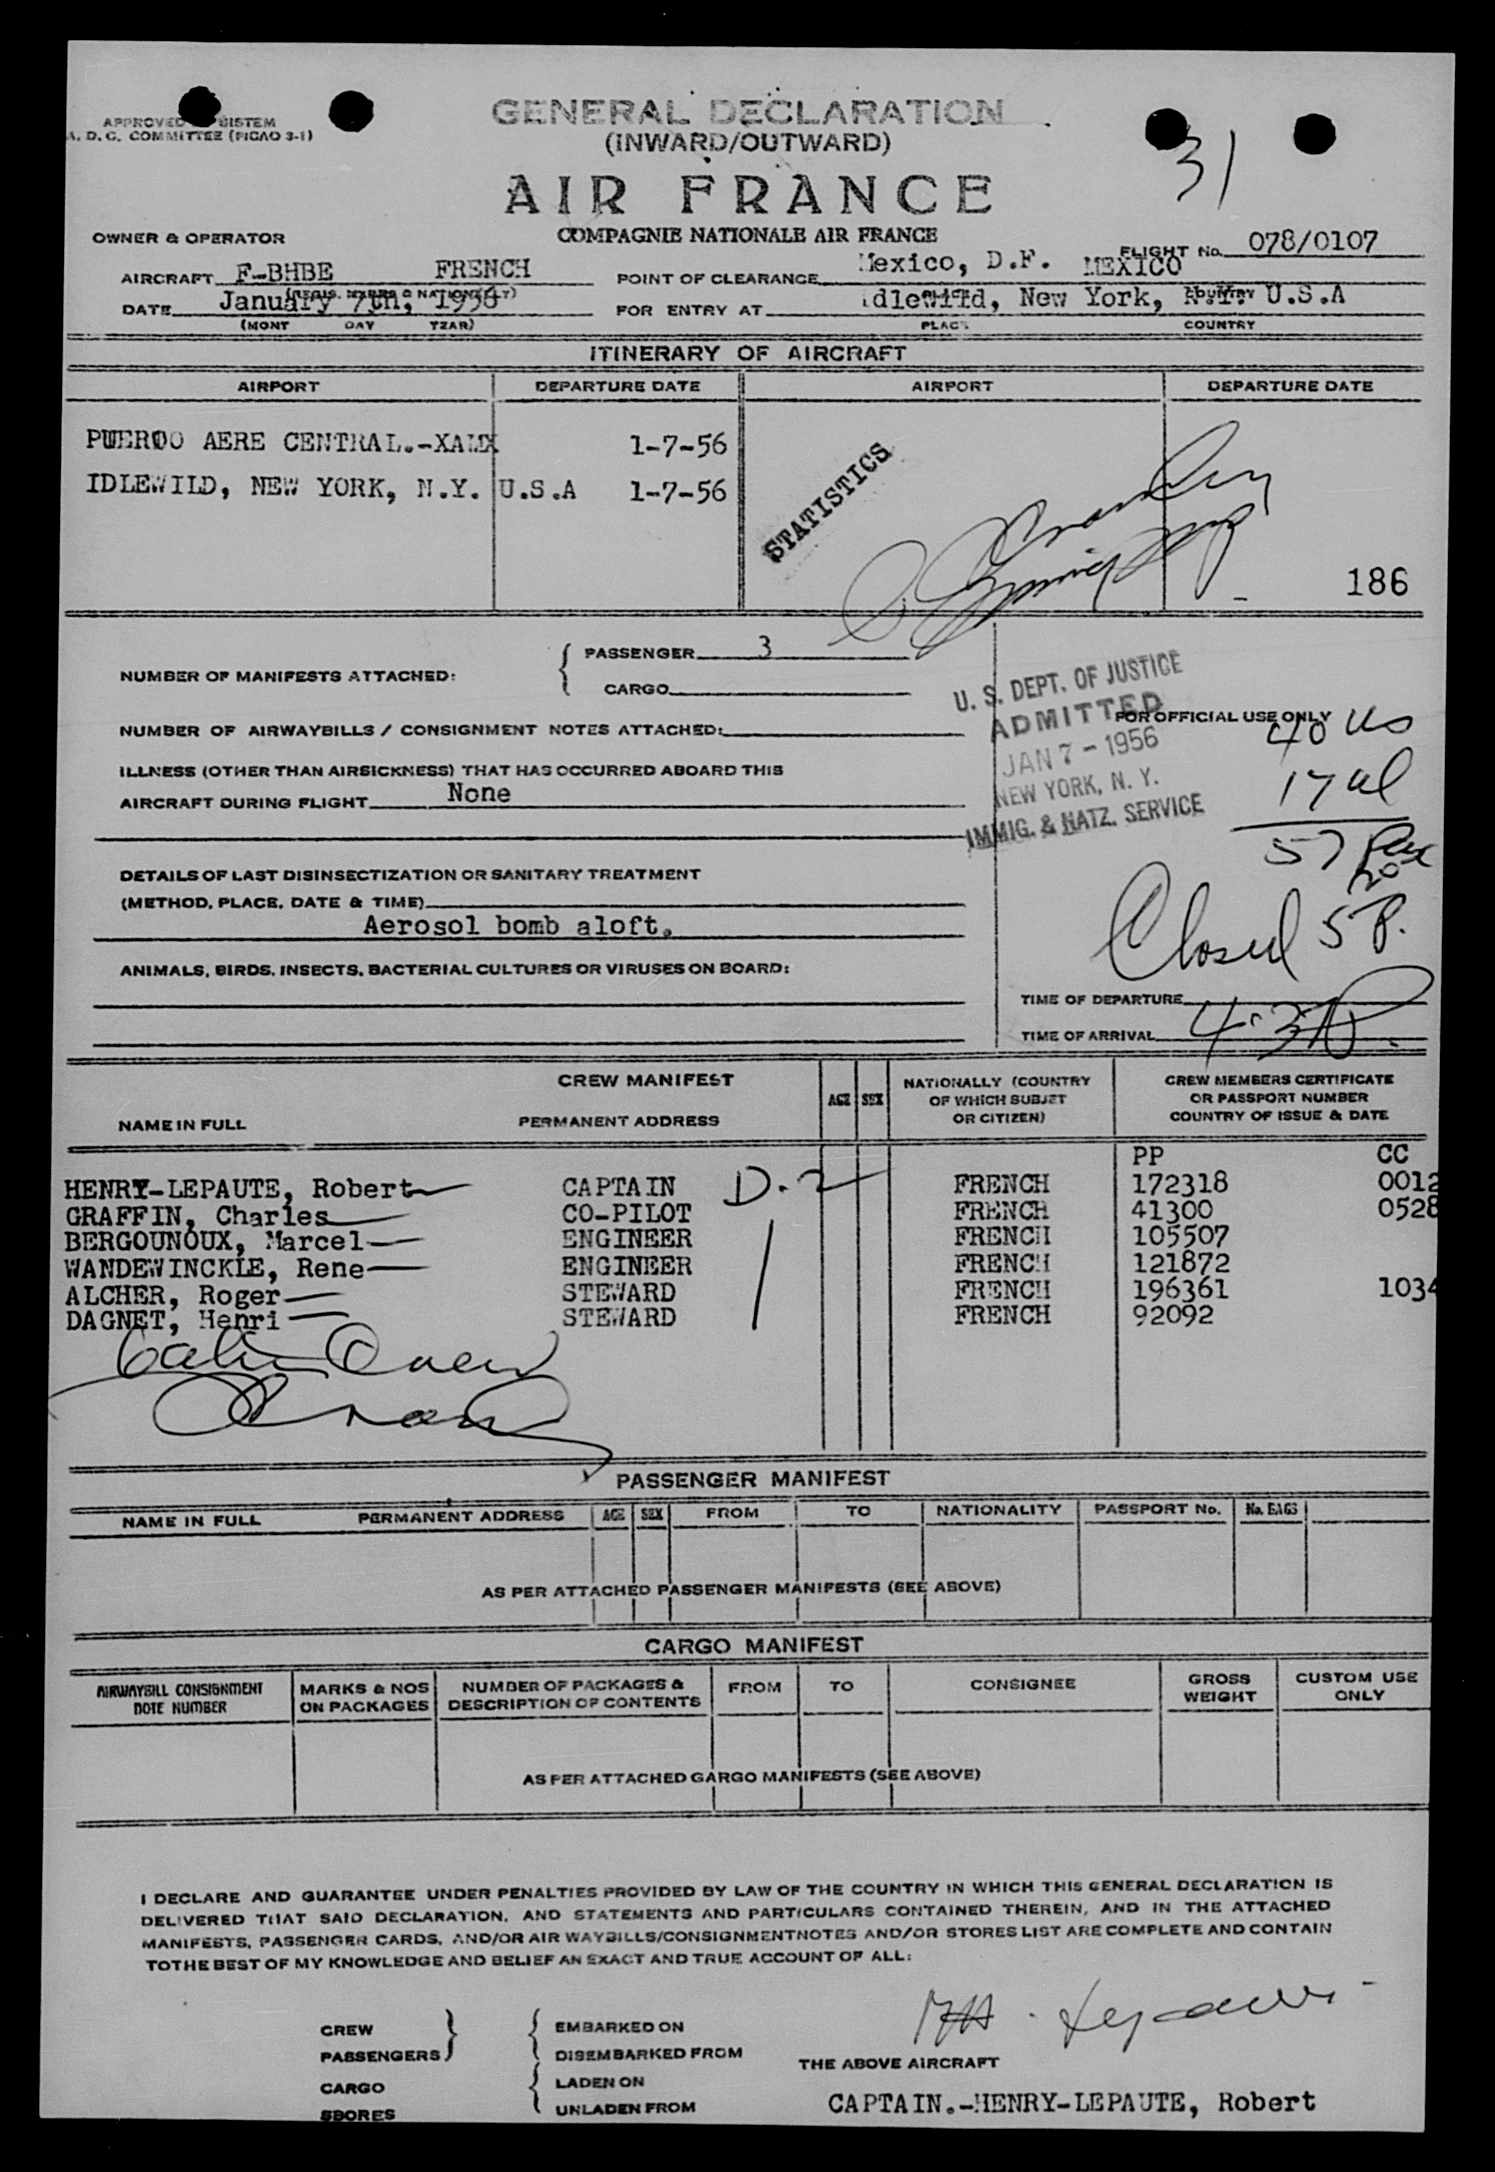 GENERAL DECLARATION
(INWARD/OUTWARD)
AIR FRANCE
COMPAGNIE NATIONALE AIR FRANCE
APPROVED SISTEM
A. D. C. COMMITTEE (PICAO 3-1)
31
OWNER & OPERATOR
FLIGHT No. 078/0107
AIRCRAFT F-BHBE FRENCH
POINT OF CLEARANCE Mexico, D.F. MEXICO
DATE January 7th, 1956
(MONT DAY YZAR)
FOR ENTRY AT Idlewild, New York, N.Y. U.S.A
PLACE COUNTRY
ITINERARY OF AIRCRAFT
AIRPORT DEPARTURE DATE AIRPORT DEPARTURE DATE
PUERTO AERE CENTRAL.-XAMX 1-7-56
IDLEWILD, NEW YORK, N.Y. U.S.A 1-7-56
STATISTICS
186
NUMBER OF MANIFESTS ATTACHED:
PASSENGER 3
CARGO
NUMBER OF AIRWAYBILLS / CONSIGNMENT NOTES ATTACHED:
ILLNESS (OTHER THAN AIRSICKNESS) THAT HAS OCCURRED ABOARD THIS
AIRCRAFT DURING FLIGHT None
DETAILS OF LAST DISINSECTIZATION OR SANITARY TREATMENT
(METHOD, PLACE, DATE & TIME)
Aerosol bomb aloft.
ANIMALS, BIRDS, INSECTS, BACTERIAL CULTURES OR VIRUSES ON BOARD:
FOR OFFICIAL USE ONLY
U. S. DEPT. OF JUSTICE
ADMITTED
JAN 7 - 1956
NEW YORK, N. Y.
IMMIG. & NATZ. SERVICE
40 US
17 al
57 pax
Closed 5 P.
TIME OF DEPARTURE
TIME OF ARRIVAL
CREW MANIFEST
NAME IN FULL
PERMANENT ADDRESS
AGE
SEX
NATIONALLY (COUNTRY
OF WHICH SUBJET
OR CITIZEN)
CREW MEMBERS CERTIFICATE
OR PASSPORT NUMBER
COUNTRY OF ISSUE & DATE
PP CC
HENRY-LEPAUTE, Robert CAPTAIN D.2 FRENCH 172318 0012
GRAFFIN, Charles CO-PILOT FRENCH 41300 0528
BERGOUNOUX, Marcel ENGINEER FRENCH 105507
WANDEWINCKIE, Rene ENGINEER FRENCH 121872
ALCHER, Roger STEWARD FRENCH 196361 1034
DAGNET, Henri STEWARD FRENCH 92092
PASSENGER MANIFEST
NAME IN FULL PERMANENT ADDRESS AGE SEX FROM TO NATIONALITY PASSPORT No. No. BAGS
AS PER ATTACHED PASSENGER MANIFESTS (SEE ABOVE)
CARGO MANIFEST
AIRWAYBILL CONSIGNMENT
NOTE NUMBER
MARKS & NOS
ON PACKAGES
NUMBER OF PACKAGES &
DESCRIPTION OF CONTENTS
FROM
TO
CONSIGNEE
GROSS
WEIGHT
CUSTOM USE
ONLY
AS PER ATTACHED CARGO MANIFESTS (SEE ABOVE)
I DECLARE AND GUARANTEE UNDER PENALTIES PROVIDED BY LAW OF THE COUNTRY IN WHICH THIS GENERAL DECLARATION IS
DELIVERED THAT SAID DECLARATION, AND STATEMENTS AND PARTICULARS CONTAINED THEREIN, AND IN THE ATTACHED
MANIFESTS, PASSENGER CARDS, AND/OR AIR WAYBILLS/CONSIGNMENTNOTES AND/OR STORES LIST ARE COMPLETE AND CONTAIN
TOTHE BEST OF MY KNOWLEDGE AND BELIEF AN EXACT AND TRUE ACCOUNT OF ALL:
CREW
PASSENGERS
EMBARKED ON
DISEMBARKED FROM
CARGO
SBORES
LADEN ON
UNLADEN FROM
THE ABOVE AIRCRAFT
CAPTAIN.-HENRY-LEPAUTE, Robert